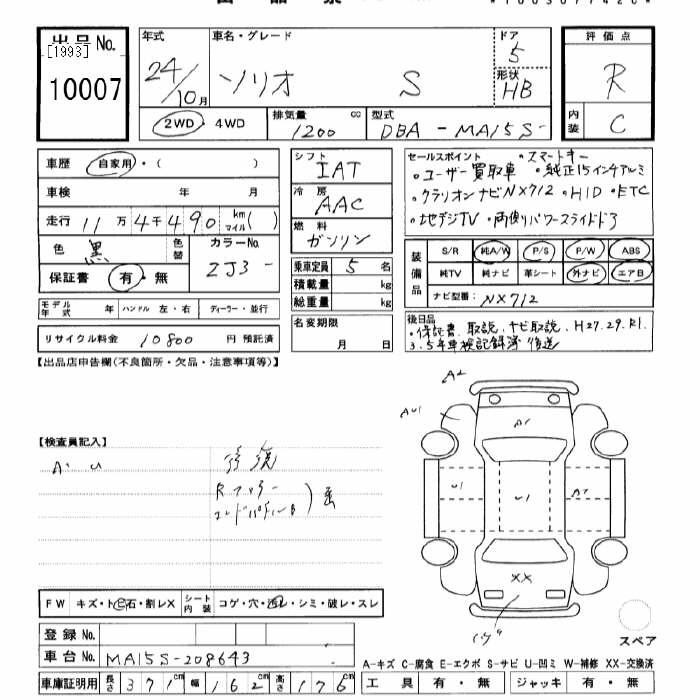 出品No.
[1993]
10007
年式
24/10月
車名・グレード
ソリオ S
ドア
5
形状
HB
2WD ・ 4WD
排気量
1200 cc
型式
DBA - MA15S -
評価点
R
内装
C
車歴 自家用・( )
車検 年 月
走行 11万4千490 km マイル( )
色 黒 色替
カラーNo.
ZJ3 -
保証書 有・無
モデル年式 年 ハンドル 左・右 ディーラー・並行
リサイクル料金 10800 円 預託済
シフト
IAT
冷房
AAC
燃料
ガソリン
乗車定員 5 名
積載量 kg
総重量 kg
名変期限
月 日
セールスポイント ・スマートキー
・ユーザー買取車 ・純正15インチアルミ
・クラリオンナビNX712 ・HID ・ETC
・地デジTV ・両側パワースライドドア
装備品
S/R 純A/W P/S P/W ABS
純TV 純ナビ 革シート 外ナビ エアB
ナビ型番: NX712
後日品
・保証書、取説、ナビ取説、H27.29.R1.
3.5年車検記録簿 後送
【出品店申告欄(不良箇所・欠品・注意事項等)】
【検査員記入】
A・U
修復
Rフロアー
エンドパネル
A2
AU1
A1
U1
U1
A2
XX
スペア
FW キズ・ト㊀石・割レX シート内装 コゲ・穴・汚レ・シミ・破レ・スレ
登録No.
車台No. MA15S-208643
車庫証明用 長さ 371cm 幅 162cm 高さ 176cm
A-キズ C-腐食 E-エクボ S-サビ U-凹ミ W-補修 XX-交換済
工具 有・無 ジャッキ 有・無